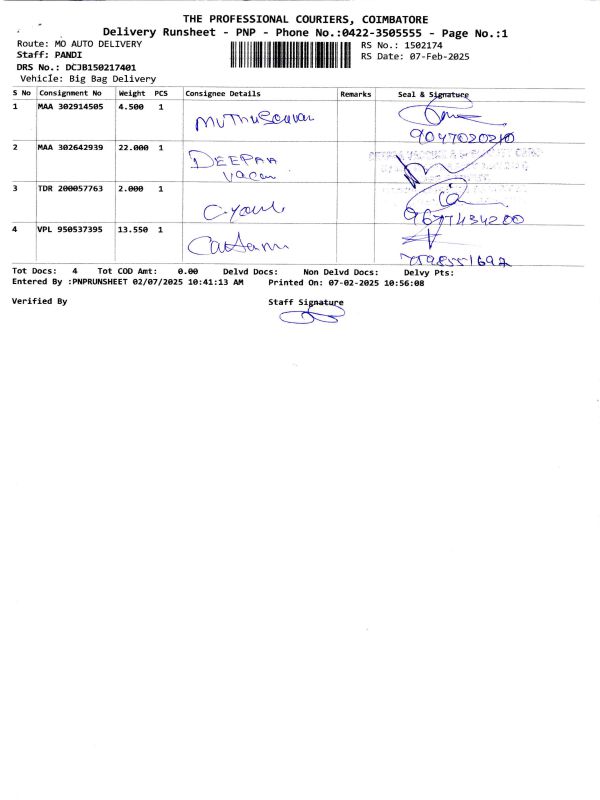 THE PROFESSIONAL COURIERS, COIMBATORE
Delivery Runsheet - PNP - Phone No.:0422-3505555 - Page No.:1
Route: MO AUTO DELIVERY RS No.: 1502174
Staff: PANDI RS Date: 07-Feb-2025
DRS No.: DCJB150217401
Vehicle: Big Bag Delivery
S No Consignment No Weight PCS Consignee Details Remarks Seal & Signature
1 MAA 302914505 4.500 1
9047020210
2 MAA 302642939 22.000 1 DEEPAA
3 TDR 200057763 2.000 1
9677434280
4 VPL 950537395 13.550 1
7598551692
Tot Docs: 4 Tot COD Amt: 0.00 Delvd Docs: Non Delvd Docs: Delvy Pts:
Entered By :PNPRUNSHEET 02/07/2025 10:41:13 AM Printed On: 07-02-2025 10:56:08
Verified By Staff Signature